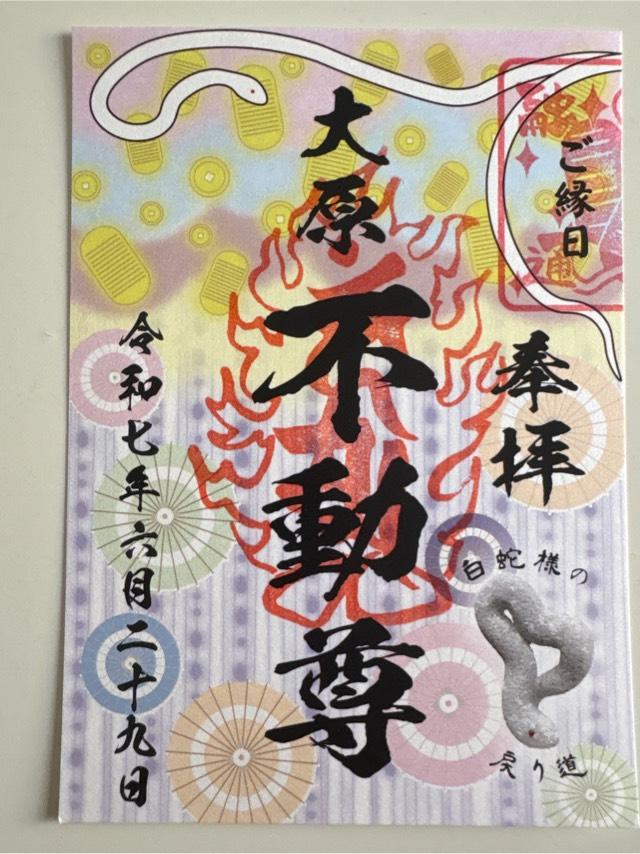 ご縁日
奉拝
大原
不動尊
令和七年六月二十九日
白蛇様の
戻り道